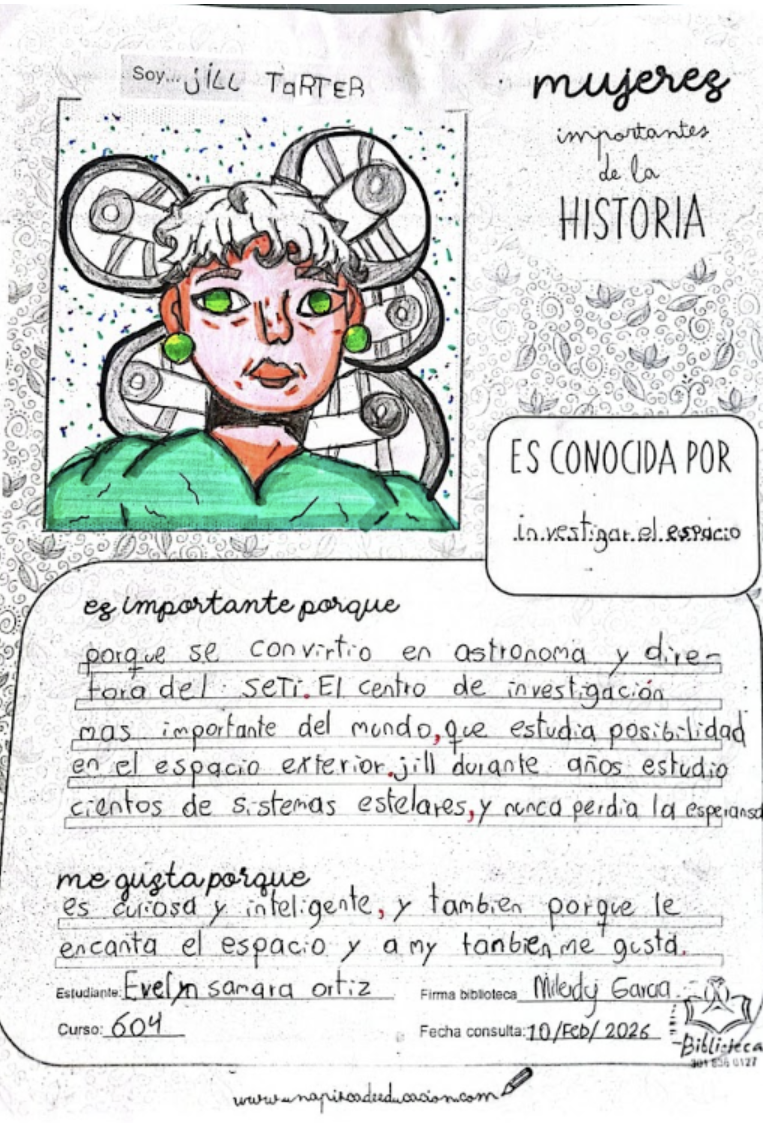 Soy... jill TarTER
mujeres
importantes
de la
HISTORIA
ES CONOCIDA POR
investigar el espacio
es importante porque
porque se convirtio en astronoma y dire-
tora del seti. El centro de investigación
mas importante del mundo, que estudia posibilidad
en el espacio exterior. jill durante años estudio
cientos de sistemas estelares, y nunca perdia la esperansa
me gusta porque
es curiosa y inteligente, y tambien porque le
encanta el espacio y a my tanbien me gusta.
Estudiante: Evelyn samara ortiz
Firma biblioteca Milerdy Garcia
Curso: 604
Fecha consulta: 10/Feb/2026
Biblioteca
www.unapizcadeeducacion.com